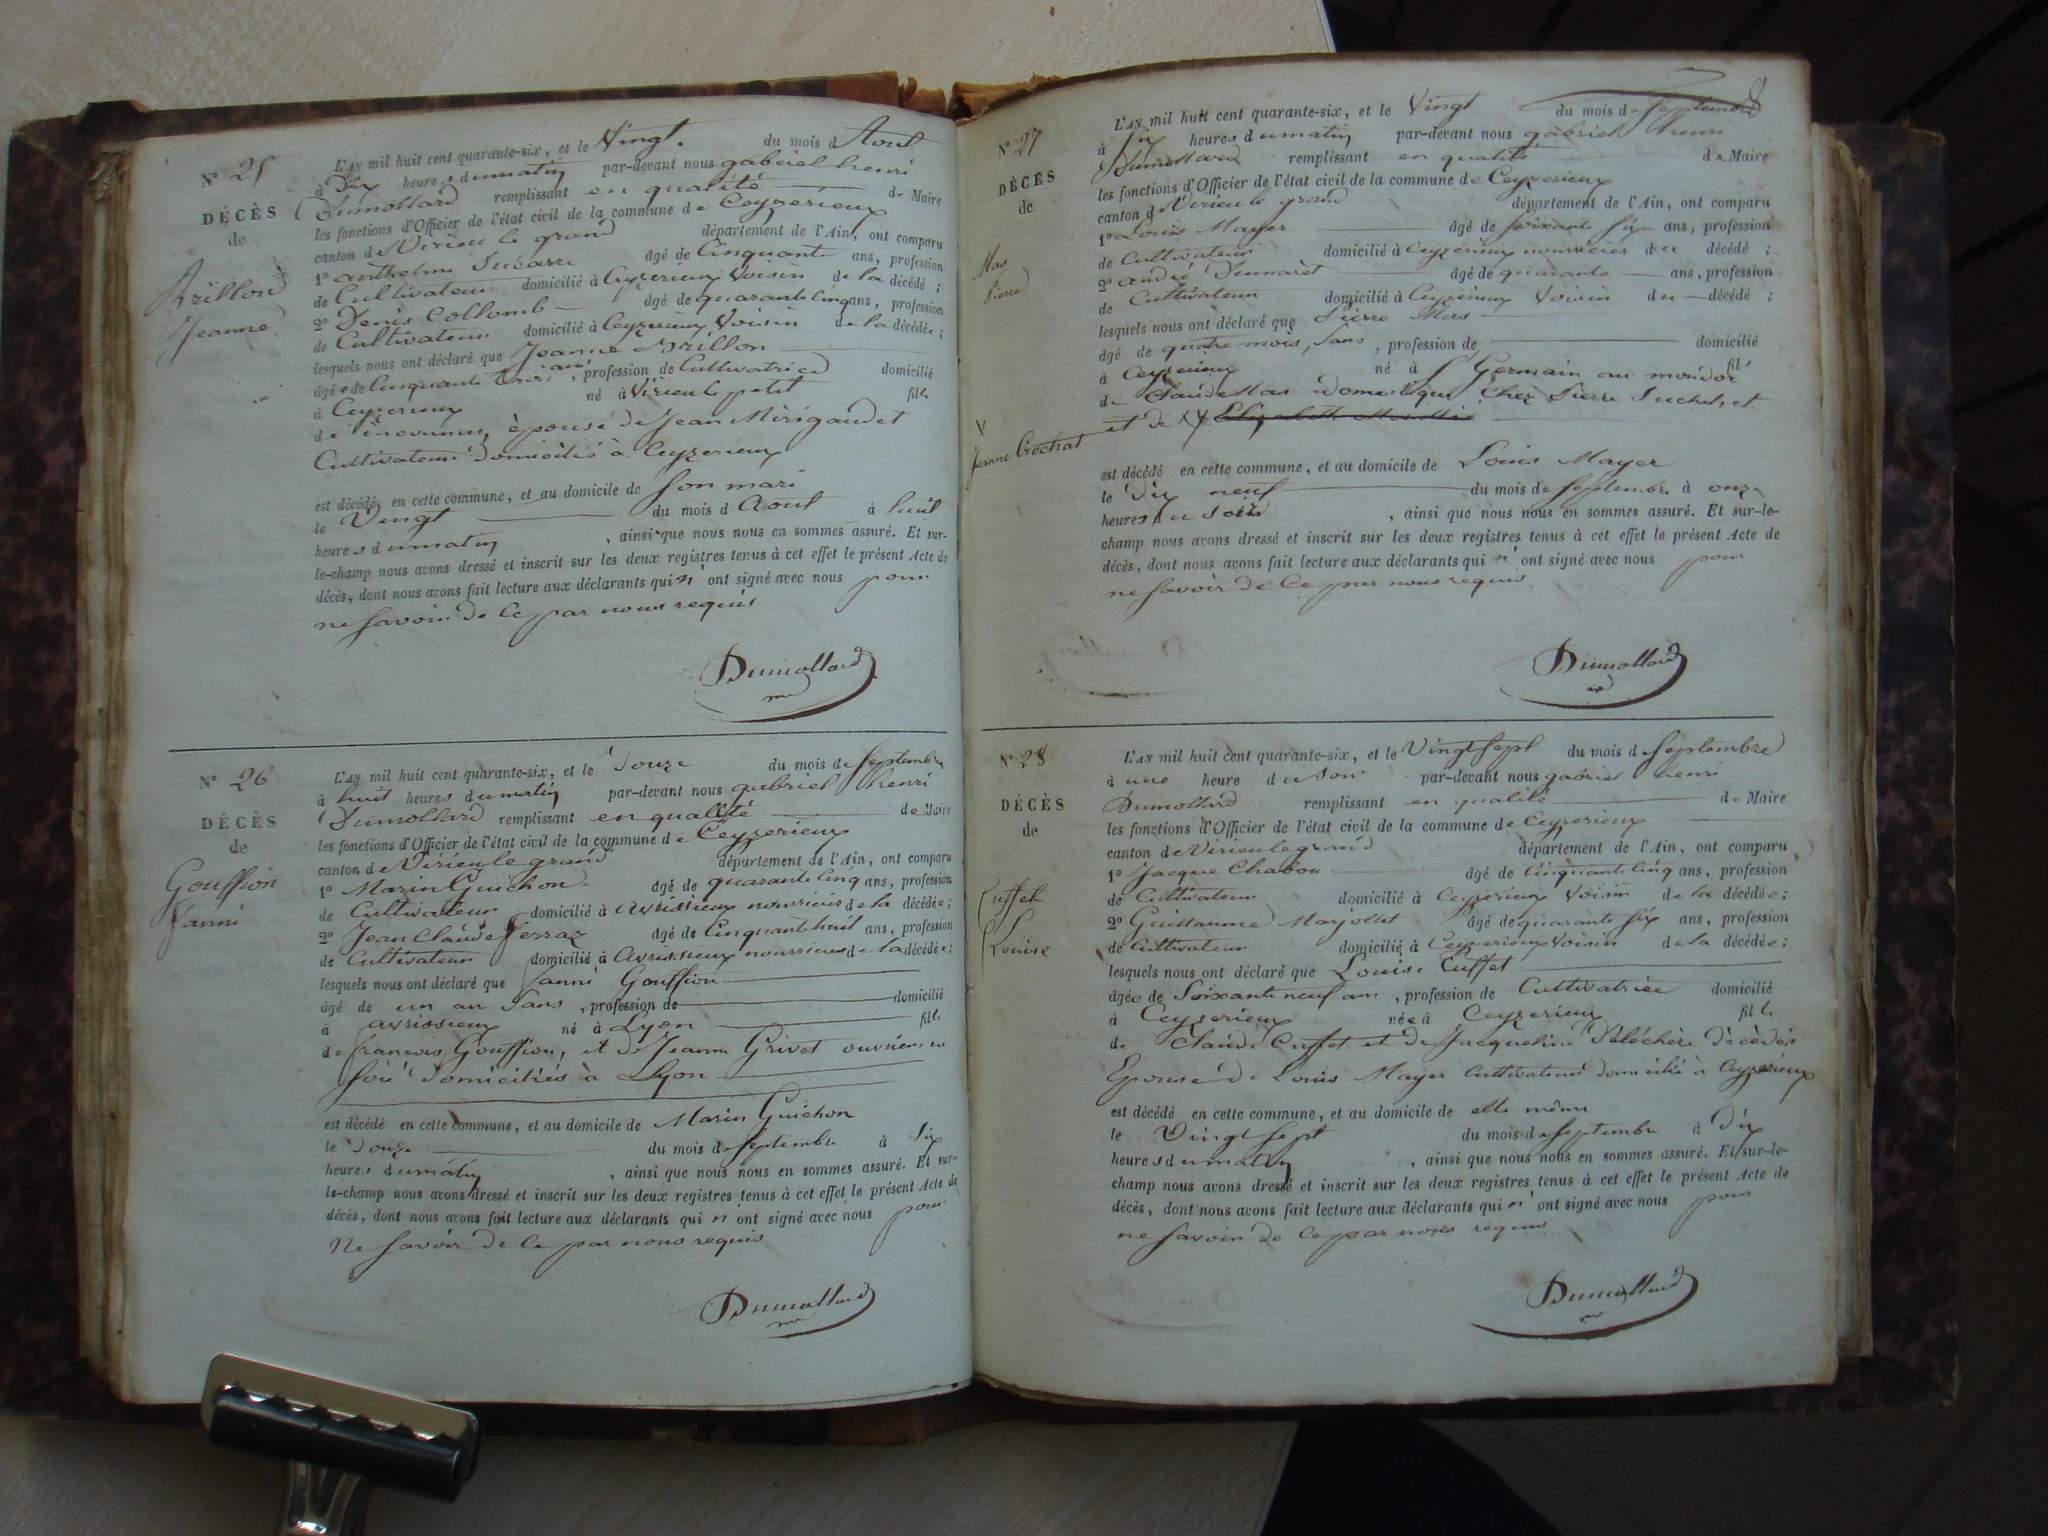 N° 25
DÉCÈS
de
Brillon
Jeanne
L'AN mil huit cent quarante-six, et le Vingt du mois d Aout
à Dix heures du matin par-devant nous gabriel henri
Dumollard remplissant en qualité de Maire
les fonctions d'Officier de l'état civil de la commune de Ceyzerieux
canton de Virieu le grand département de l'Ain, ont comparu
1° anthelme âgé de Cinquante ans, profession
de Cultivateur domicilié à Ceyzerieux Voisin de la décédé ;
2° Denis Collomb âgé de quarante cinq ans, profession
de Cultivateur domicilié à Ceyzerieux Voisin de la décédée ;
lesquels nous ont déclaré que Jeanne Brillon
âgée de Cinquante trois ans, profession de Cultivatrice domicilié
à Ceyzerieux né à Virieu le petit fille
de inconnus, épouse de Jean Mirigaudet
Cultivateur domicilié à Ceyzerieux
est décédée en cette commune, et au domicile de son mari
le Vingt du mois d Aout à huit
heures du matin, ainsi que nous nous en sommes assuré. Et sur-
le-champ nous avons dressé et inscrit sur les deux registres tenus à cet effet le présent Acte de
décès, dont nous avons fait lecture aux déclarants qui n'ont signé avec nous pour
ne savoir de ce par nous requis
Dumollard
N° 26
DÉCÈS
de
Gouffion
Fanni
L'AN mil huit cent quarante-six, et le Douze du mois de Septembre
à huit heures du matin par-devant nous gabriel henri
Dumollard remplissant en qualité de Maire
les fonctions d'Officier de l'état civil de la commune de Ceyzerieux
canton de Virieu le grand département de l'Ain, ont comparu
1° Marin Guichon âgé de quarante cinq ans, profession
de Cultivateur domicilié à avrissieux nourricier de la décédée ;
2° Jean Claude Ferraz âgé de Cinquante huit ans, profession
de Cultivateur domicilié à avrissieux nourricier de la décédée ;
lesquels nous ont déclaré que fanni Gouffion
âgé de un an Sans, profession de domicilié
à avrissieux né à Lyon fille
de francois Gouffion, et de Jeanne Grivet ouvriers en
soie domiciliés à Lyon
est décédé en cette commune, et au domicile de Marin Guichon
le Douze du mois de Septembre à Six
heures du matin, ainsi que nous nous en sommes assuré. Et sur-
le-champ nous avons dressé et inscrit sur les deux registres tenus à cet effet le présent Acte de
décès, dont nous avons fait lecture aux déclarants qui n'ont signé avec nous pour
Ne savoir de ce par nous requis
Dumollard
N° 27
DÉCÈS
de
Mas
Pierre
L'AN mil huit cent quarante-six, et le Vingt du mois de Septembre
à Six heures du matin par-devant nous gabriel henri
Dumollard remplissant en qualité de Maire
les fonctions d'Officier de l'état civil de la commune de Ceyzerieux
canton de Virieu le grand département de l'Ain, ont comparu
1° Louis Mayer âgé de soixante six ans, profession
de Cultivateur domicilié à Ceyzerieux nourricier du décédé ;
2° andré Dumarêt âgé de quarante ans, profession
de Cultivateur domicilié à Ceyzerieux Voisin du décédé ;
lesquels nous ont déclaré que Pierre Mas
âgé de quatre mois, Sans, profession de domicilié
à Ceyzerieux né à St Germain au mondor fil
de Claude Mas domestique chez Pierre Suchet, et
et de
Jeanne Crochat
est décédé en cette commune, et au domicile de Louis Mayer
le Dix neuf du mois de Septembre à onze
heures du soir, ainsi que nous nous en sommes assuré. Et sur-le-
champ nous avons dressé et inscrit sur les deux registres tenus à cet effet le présent Acte de
décès, dont nous avons fait lecture aux déclarants qui n'ont signé avec nous pour
ne savoir de ce par nous requis
Dumollard
N° 28
DÉCÈS
de
Cuffet
Louise
L'AN mil huit cent quarante-six, et le Vingt Sept du mois d Septembre
à une heure du soir par-devant nous gabriel henri
Dumollard remplissant en qualité de Maire
les fonctions d'Officier de l'état civil de la commune de Ceyzerieux
canton de Virieu le grand département de l'Ain, ont comparu
1° Jacque Chabou âgé de Cinquante Cinq ans, profession
de Cultivateur domicilié à Ceyzerieux Voisin de la décédée ;
2° Guillaume Marjollet âgé de quarante six ans, profession
de Cultivateur domicilié à Ceyzerieux Voisin de la décédée ;
lesquels nous ont déclaré que Louise Cuffet
âgée de Soixante neuf ans, profession de Cultivatrice domicilié
à Ceyzerieux née à Ceyzerieux fille
de Claude Cuffet et de Jacqueline décédés
Epouse de Louis Mayer Cultivateur domicilié à Ceyzerieux
est décédé en cette commune, et au domicile de elle même
le Vingt Sept du mois de Septembre à Dix
heures du matin, ainsi que nous nous en sommes assuré. Et sur-le-
champ nous avons dressé et inscrit sur les deux registres tenus à cet effet le présent Acte de
décès, dont nous avons fait lecture aux déclarants qui n'ont signé avec nous pour
ne savoir de ce par nous requis
Dumollard